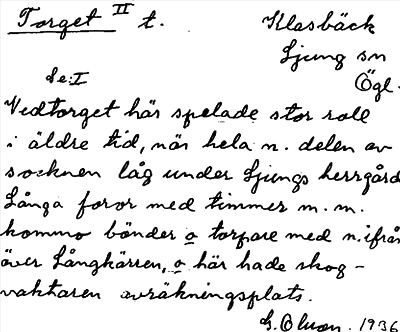 Torget II t. Klasbäck
Ljung sn
Ögl.
Se I
Vedtorget här spelade stor roll
i äldre tid, när hela n. delen av
socknen låg under Ljungs herrgård
Långa foror med timmer m. m.
kommo bönder o torpare med n. ifrån
över Långkärren, o här hade skog-
vaktaren avräkningsplats.
1936